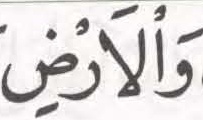 وَاْلاَرْضِ